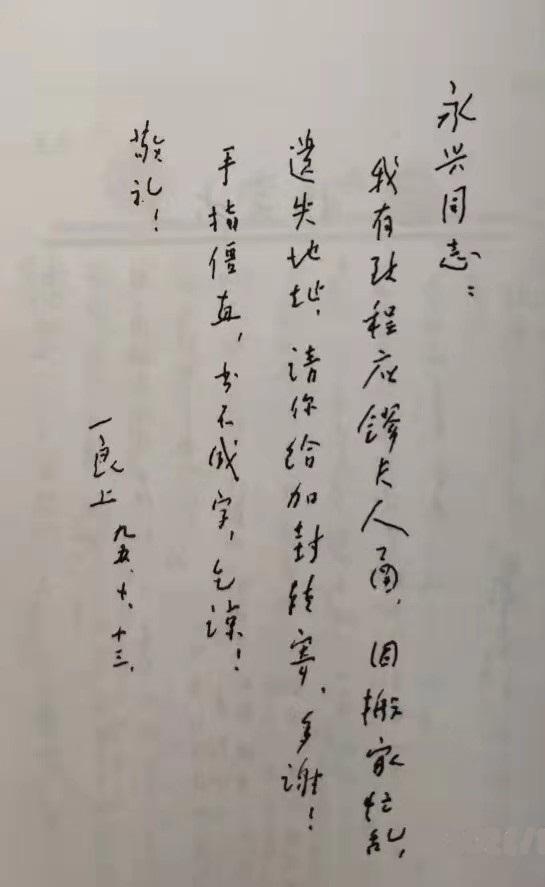 永兴同志：
我有致程应镠夫人函，因搬家忙乱，
遗失地址，请你给加封转寄，多谢！
手指僵直，书不成字，乞谅！
敬礼！
一良上 九五、十、十三、